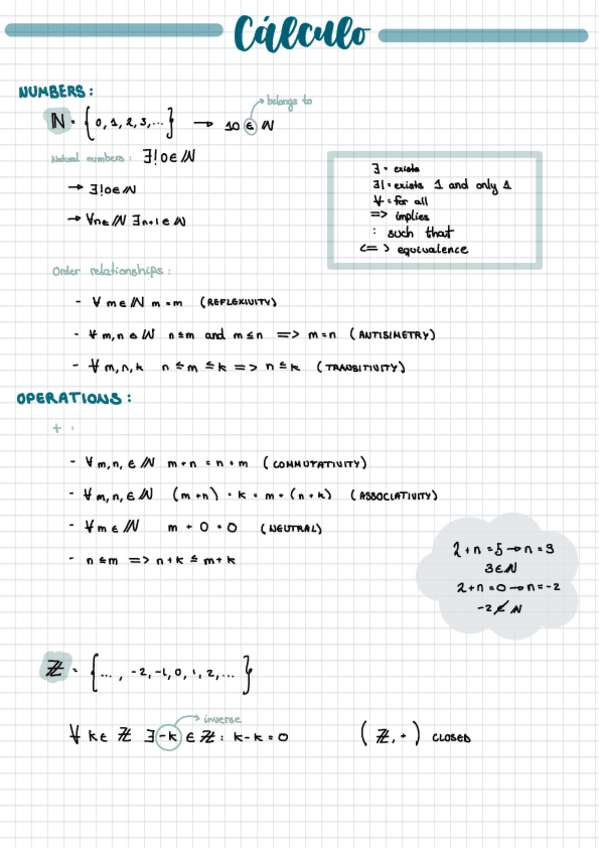 Cálculo
NUMBERS:
belongs to
ℕ = {0, 1, 2, 3, ...} → 10 ∈ ℕ
Natural numbers: ∃!0∈ℕ
→ ∃!0∈ℕ
→ ∀n∈ℕ ∃n+1∈ℕ
∃ = exists
∃! = exists 1 and only 1
∀ = for all
=> implies
: such that
<=> equivalence
Order relationships:
- ∀ m∈ℕ m=m (REFLEXIVITY)
- ∀ m,n ∈ ℕ n≤m and m≤n => m=n (ANTISIMETRY)
- ∀ m,n,k n≤m≤k => n≤k (TRANSITIVITY)
OPERATIONS:
+ :
- ∀ m,n, ∈ ℕ m+n = n+m (COMMUTATIVITY)
- ∀ m,n, ∈ ℕ (m+n) + k = m+(n+k) (ASSOCIATIVITY)
- ∀ m ∈ ℕ m + 0 = 0 (NEUTRAL)
- n≤m => n+k ≤ m+k
2+n=5→n=3
3∈ℕ
2+n=0→n=-2
-2∉ℕ
ℤ = {..., -2, -1, 0, 1, 2, ...}
inverse
∀ k∈ ℤ ∃-k ∈ ℤ: k-k=0 (ℤ,+) CLOSED